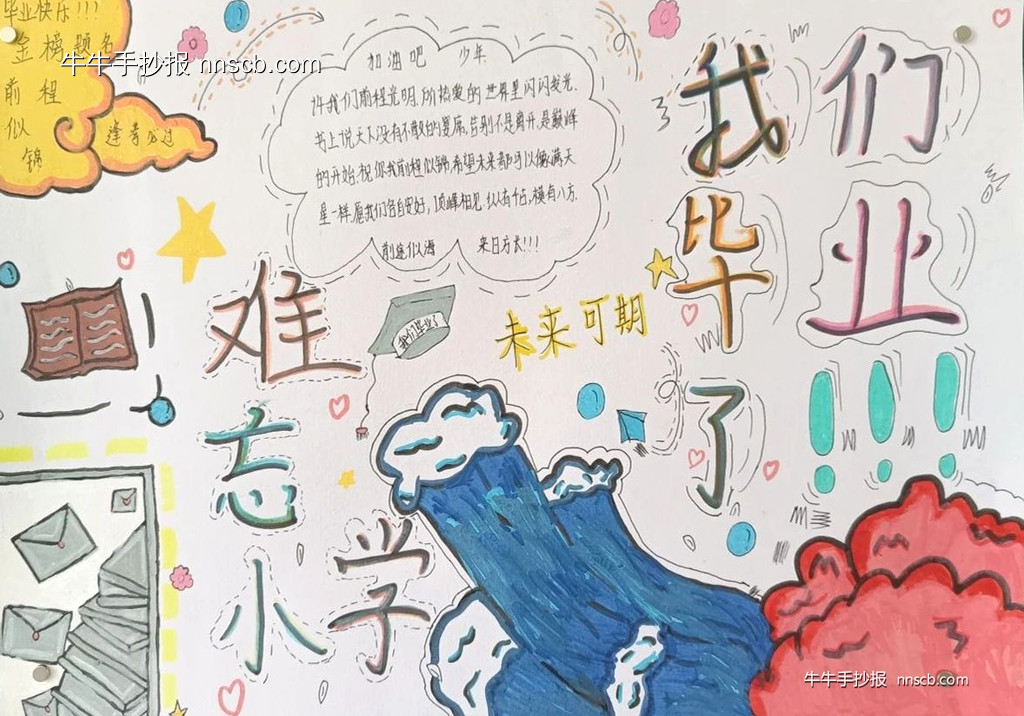 毕业快乐!!!
金榜题名
前程
似
锦
逢考必过
牛牛手抄报 nnscb.com
加油吧 少年
许我们前程光明.所热爱的世界里闪闪发光.
书上说天下没有不散的宴席.告别不是离开.是巅峰
的开始.祝你我前程似锦.希望未来都可以像满天
星一样.愿我们各自安好,顶峰相见.纵有千古,横有八方.
前途似海 来日方长!!!
我们
毕业
了!!!
我们毕业了
未来可期
难
忘
小学
牛牛手抄报 nnscb.com